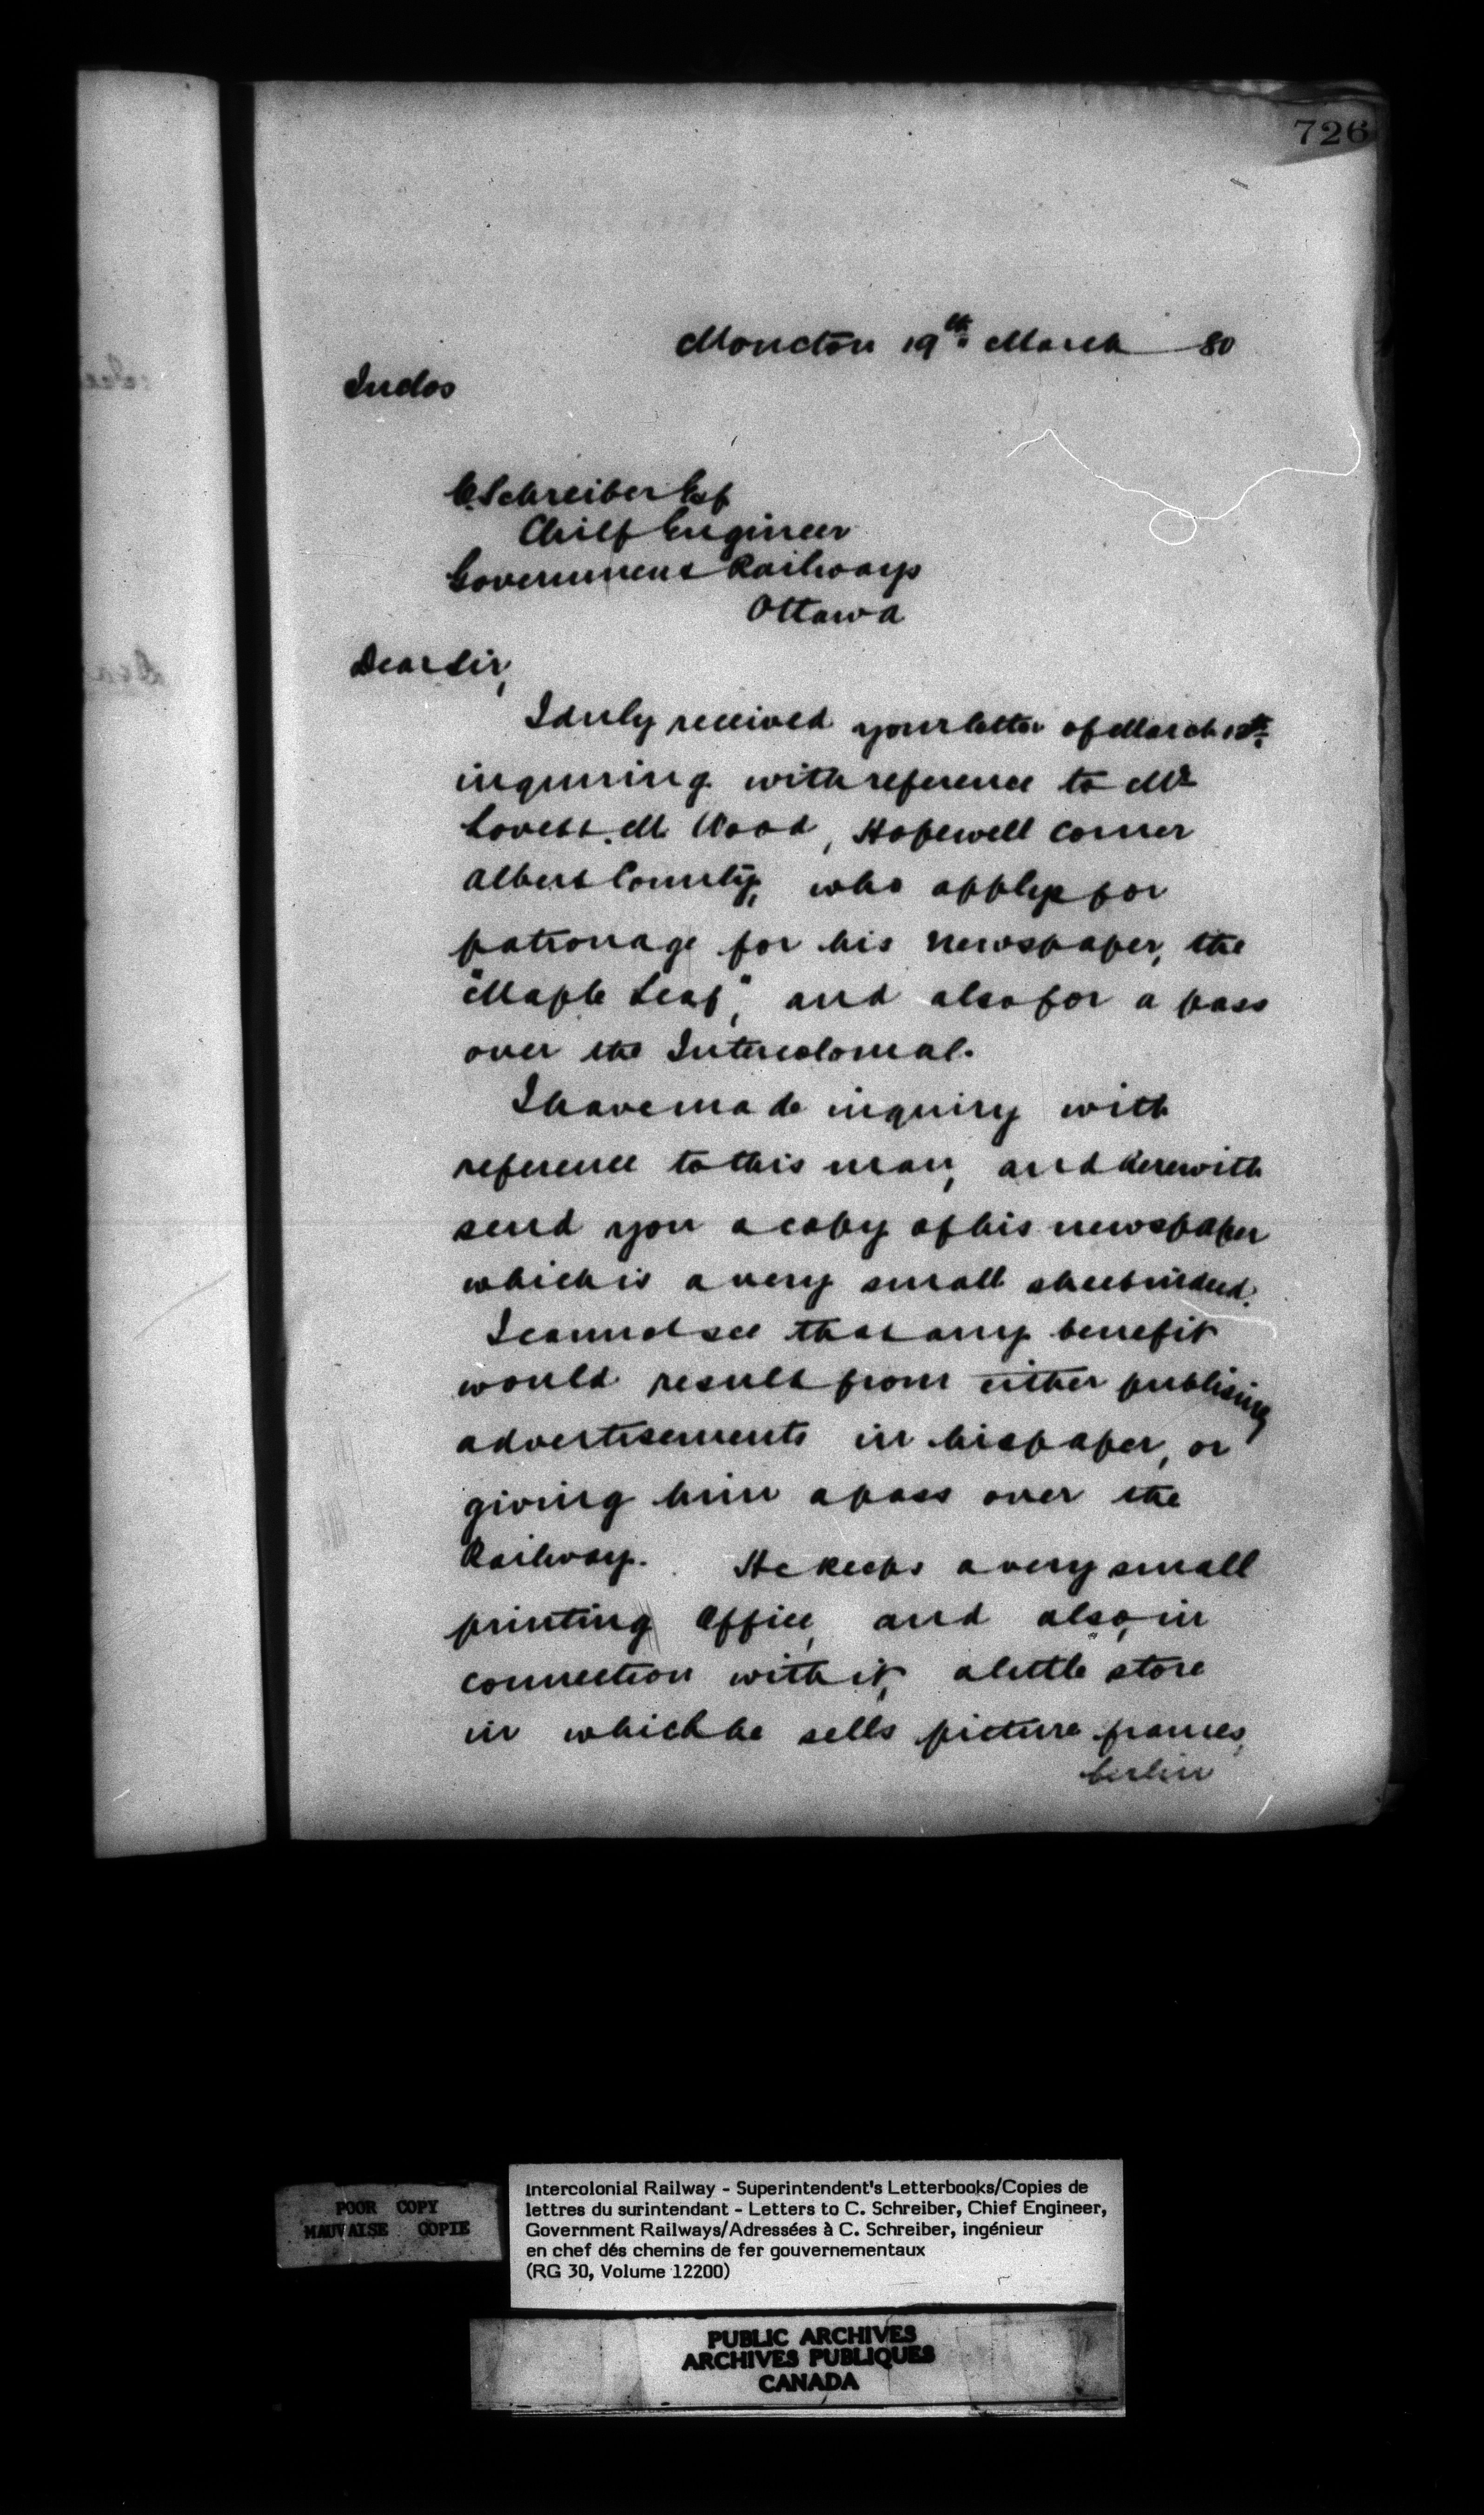 726
Moncton 19th March 80
Inclos
C. Schreiber Esq
Chief Engineer
Government Railways
Ottawa
Dear Sir,
I duly received your letter of March
inquiring with reference to Mr
Lovett. M Wood, Hopewell Corner
Albert County, who applys for
patronage for his newspaper, the
"Maple Leaf", and also for a pass
over the Intercolonial.
I have made inquiry with
reference to this man, and herewith
send you a copy of his newspaper
which is a very small sheet indeed.
I cannot see that any benefit
would result from either publising
advertisements in his paper, or
giving him a pass over the
Railway. He keeps a very small
printing Office, and also, in
connection with it, a little store
in which he sells picture frames,
berlin
POOR COPY
MAUVAISE COPIE
Intercolonial Railway - Superintendent's Letterbooks/Copies de
lettres du surintendant - Letters to C. Schreiber, Chief Engineer,
Government Railways/Adressées à C. Schreiber, ingénieur
en chef dés chemins de fer gouvernementaux
(RG 30, Volume 12200)
PUBLIC ARCHIVES
ARCHIVES PUBLIQUES
CANADA